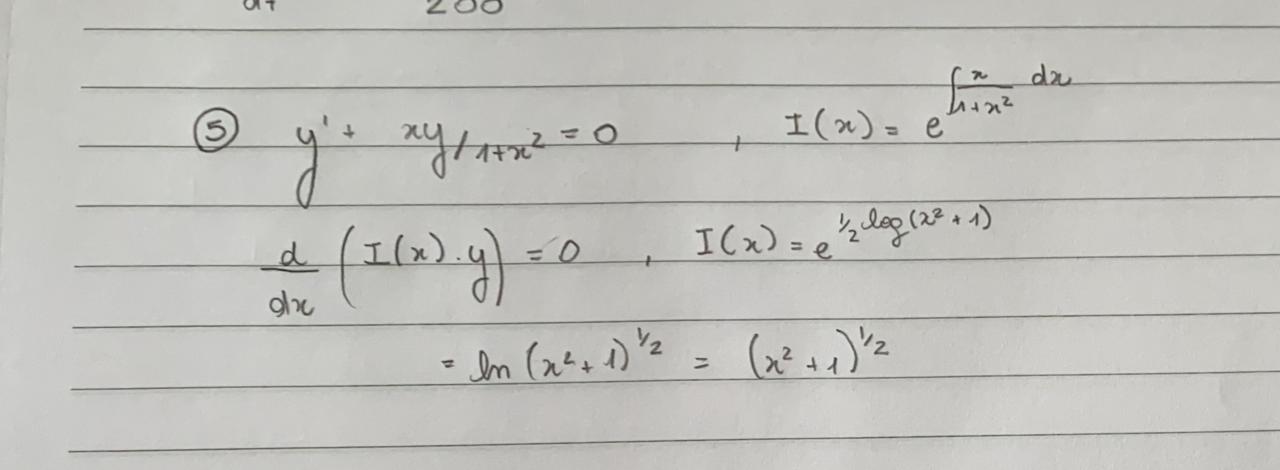 200
⑤ y' + xy/1+x² = 0 , I(x) = e^∫x/1+x² dx
d/dx (I(x).y) = 0 , I(x) = e^½ log(x²+1)
= ln (x²+1)^½ = (x²+1)^½